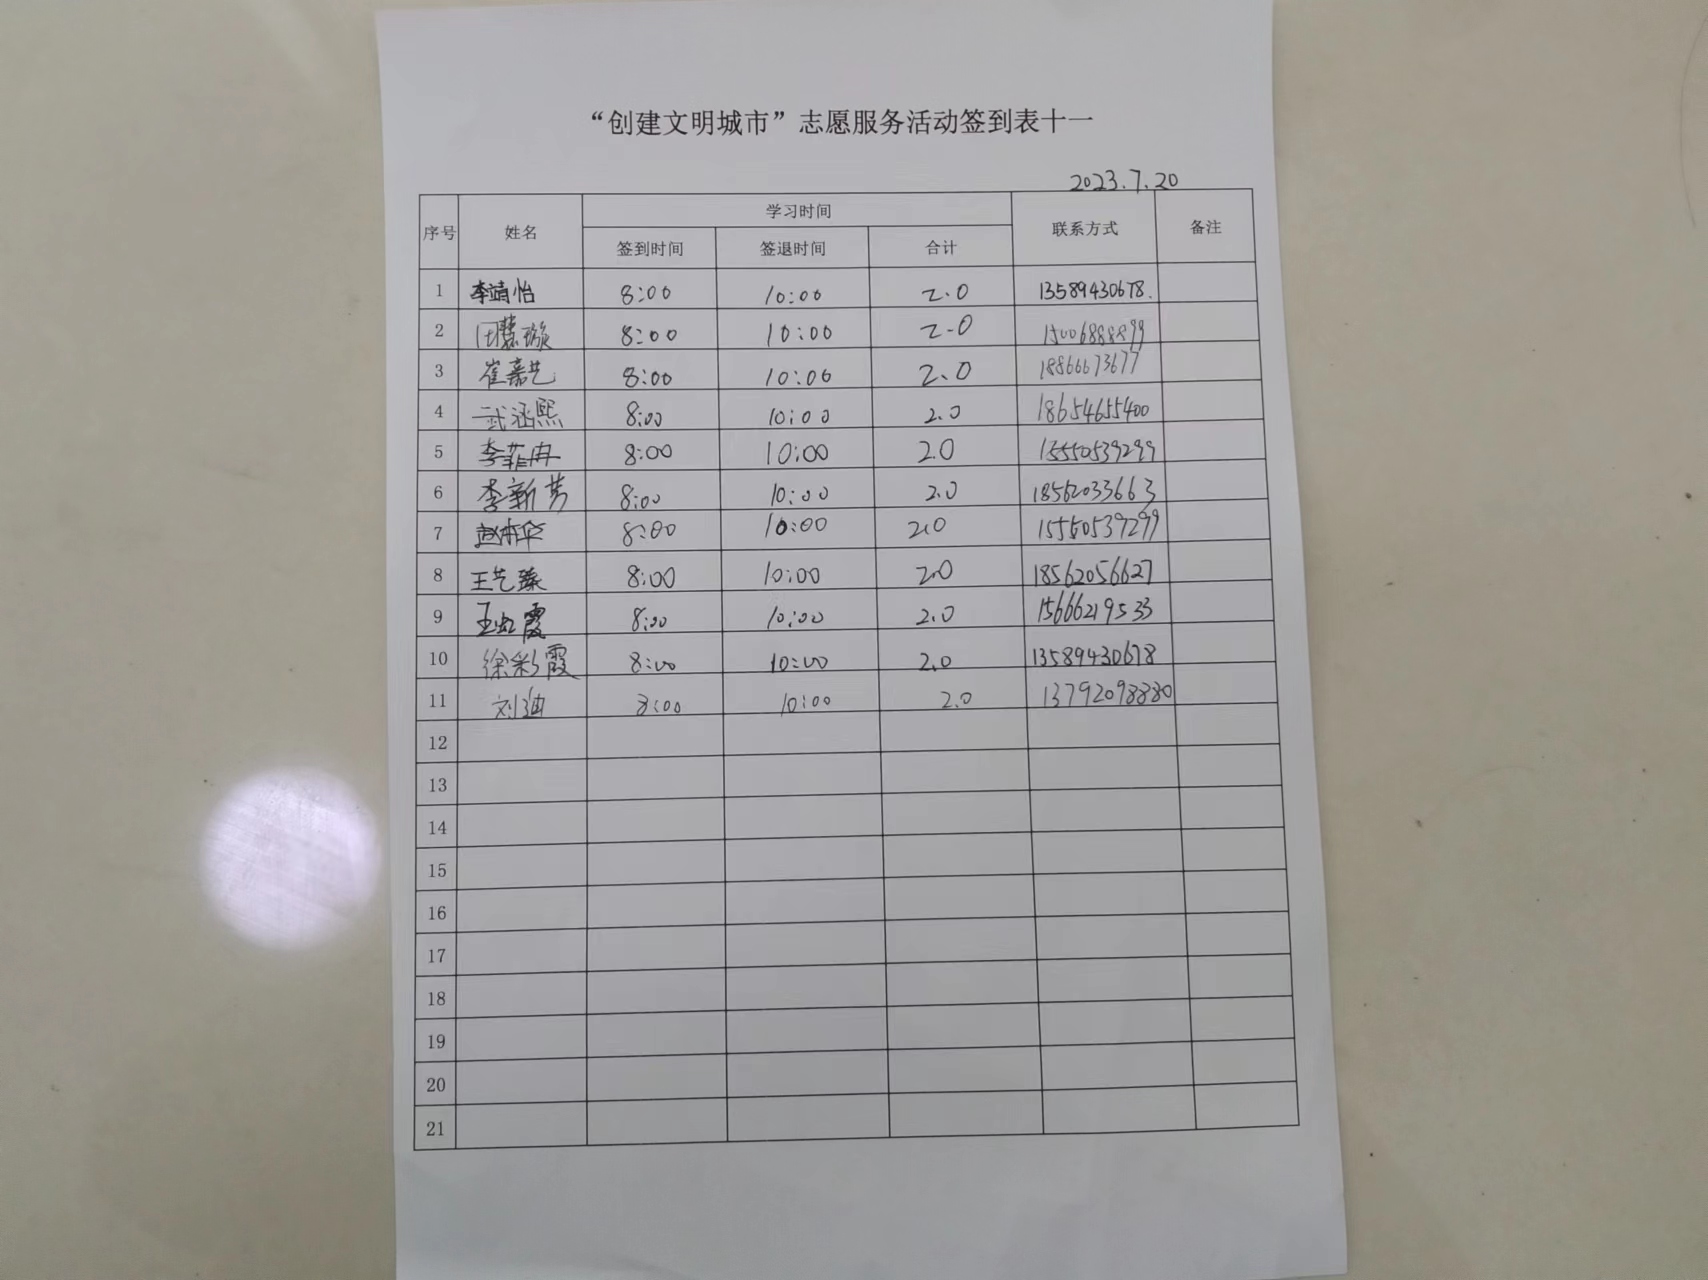 “创建文明城市”志愿服务活动签到表十一
2023.7.20
序号 姓名 学习时间 联系方式 备注
签到时间 签退时间 合计
1 李靖怡 8:00 10:00 2.0 13589430678.
2 田慧璇 8:00 10:00 2.0 15006888899
3 崔嘉艺 8:00 10:00 2.0 18866673677
4 武涵熙 8:00 10:00 2.0 18654655400
5 李菲冉 8:00 10:00 2.0 15550539299
6 李新芳 8:00 10:00 2.0 18562033663
7 8:00 10:00 2.0 15550539299
8 王艺臻 8:00 10:00 2.0 18562056627
9 王虹霞 8:00 10:00 2.0 15666219533
10 徐彩霞 8:00 10:00 2.0 13589430678
11 刘迪 8:00 10:00 2.0 13792098880
12
13
14
15
16
17
18
19
20
21